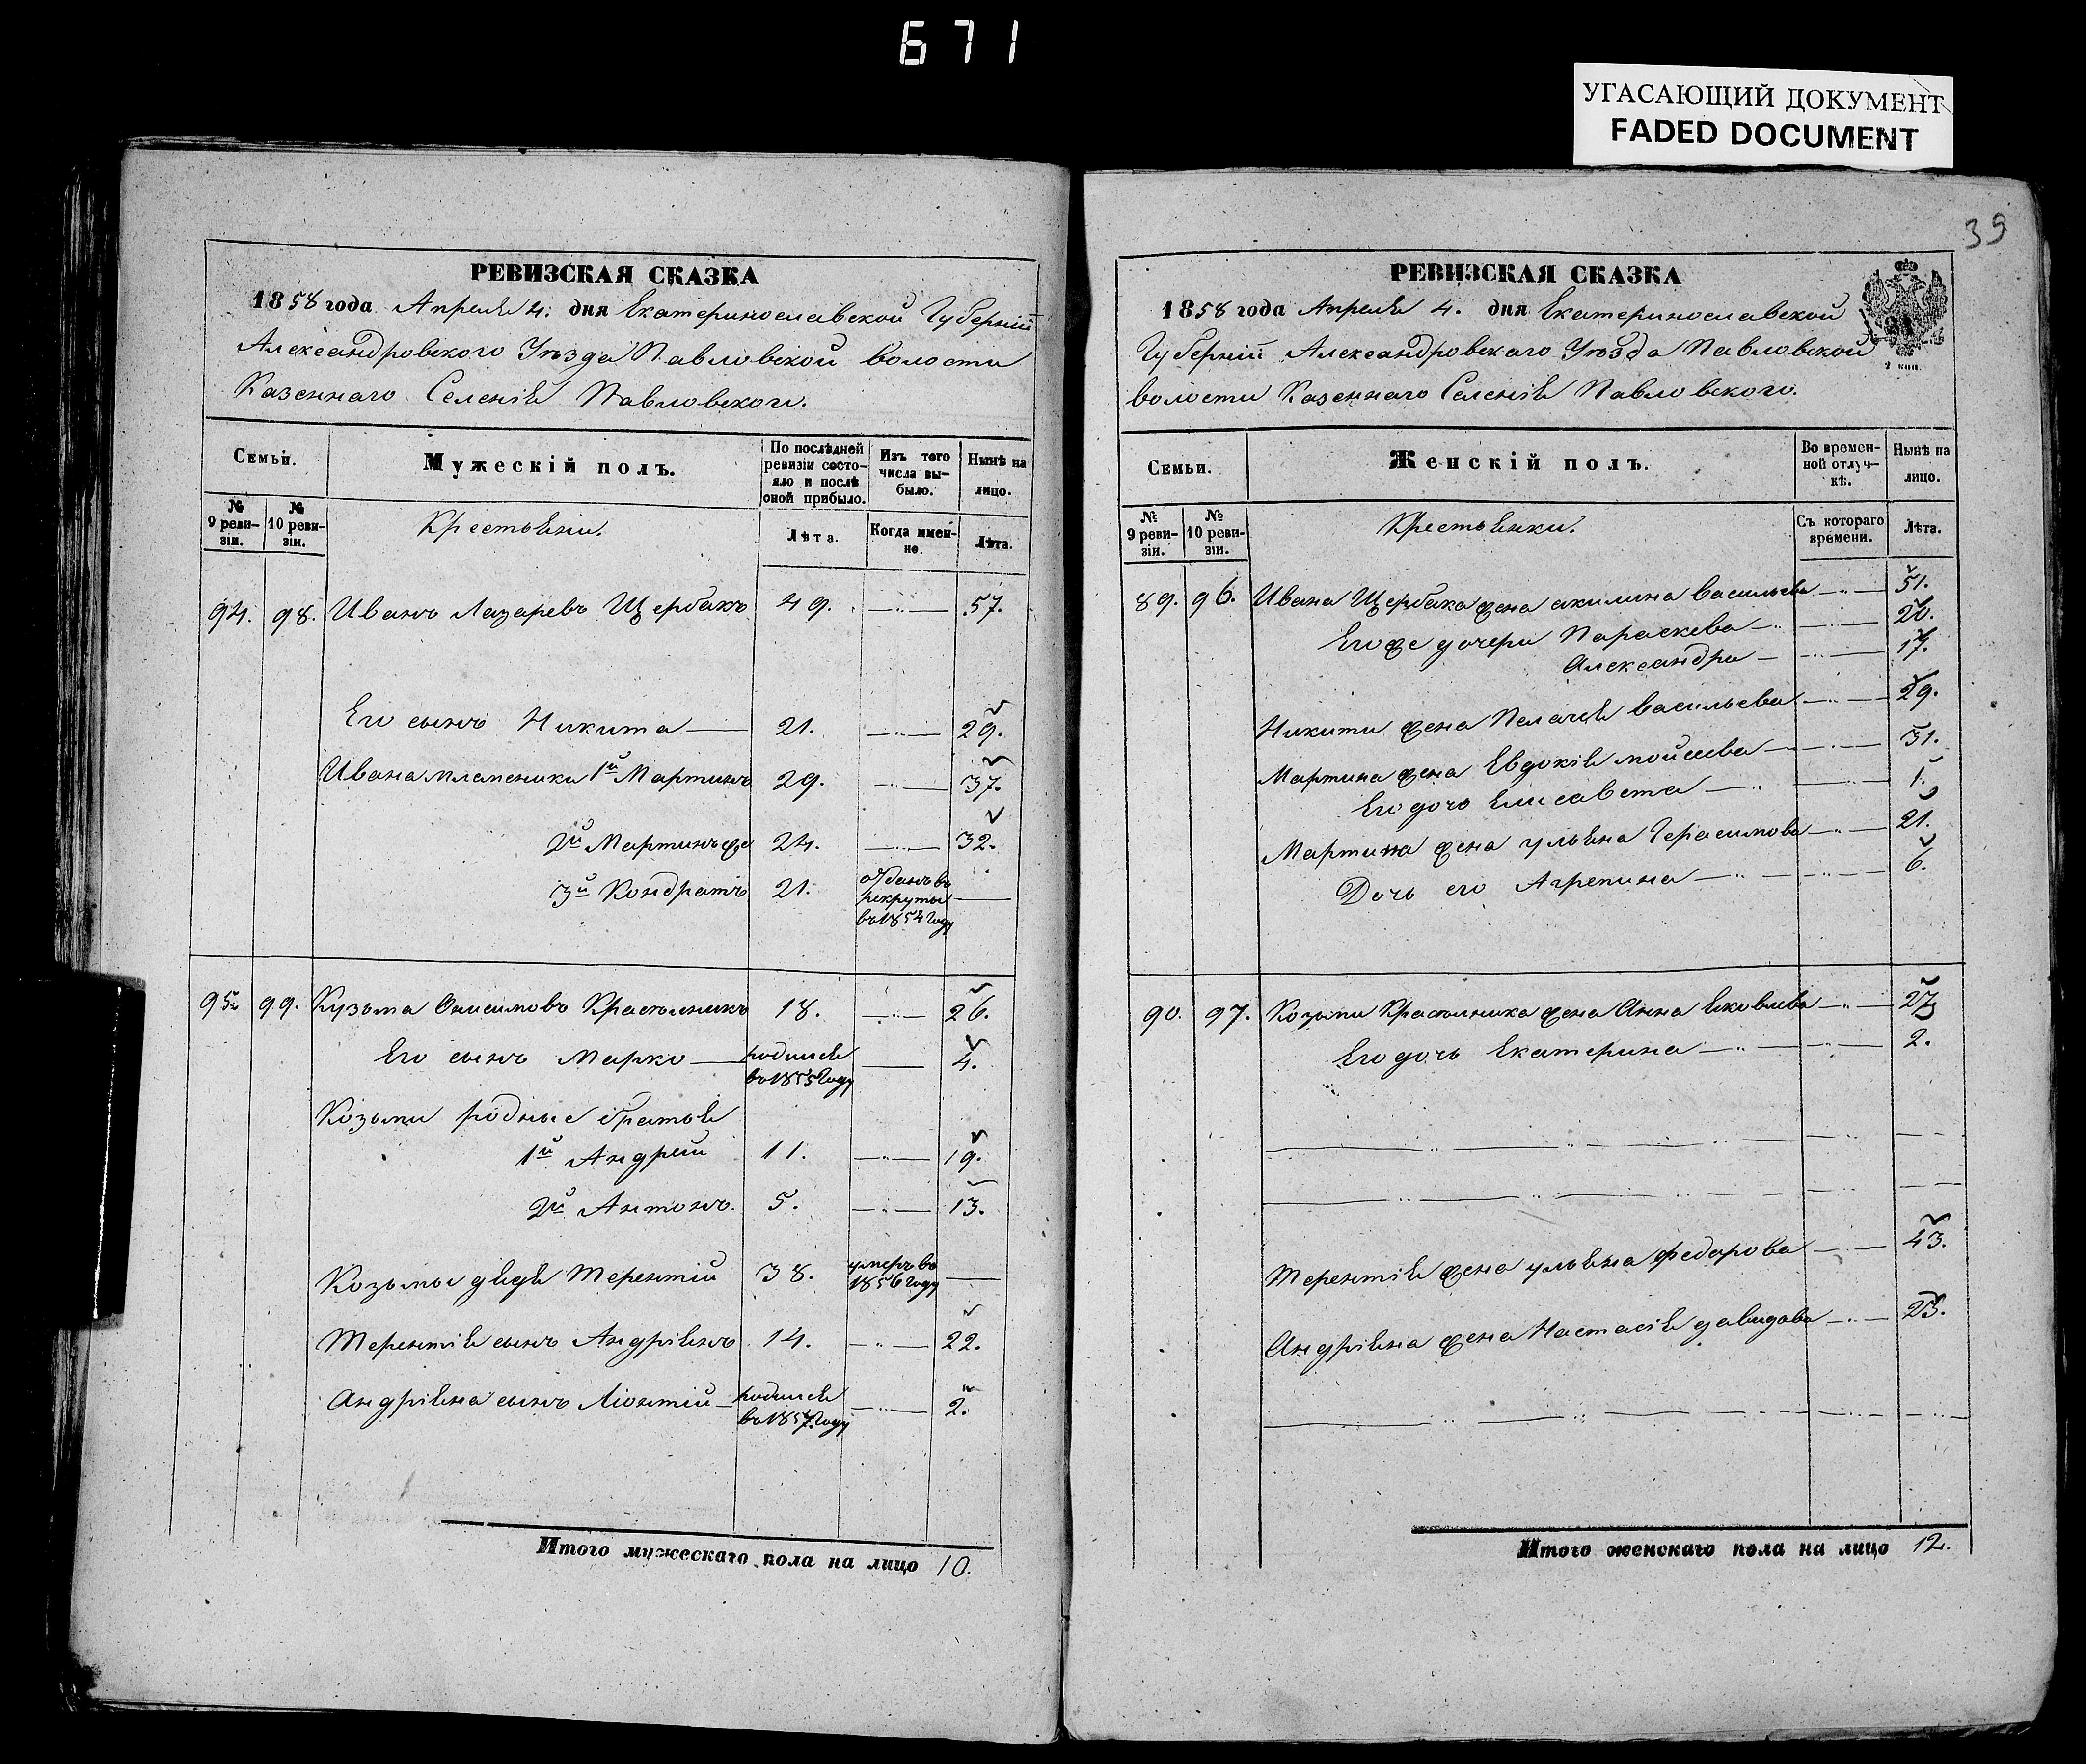 671
УГАСАЮЩИЙ ДОКУМЕНТ
FADED DOCUMENT
РЕВИЗСКАЯ СКАЗКА
1858 года Апреля 4. дня Екатеринославской Губерніи
Александровского Уѣзда Павловской волости
Казеннаго Селенія Павловского.
Семьи. Мужескій полъ. По послѣдней ревизіи состояло и послѣ оной прибыло. Изъ того числа выбыло. Нынѣ на лицо.
№ 9 ревизіи. № 10 ревизіи. Крестьяни. Лѣта. Когда именно. Лѣта.
94. 98. Иванъ Лазаревъ Щербакъ 49. 57.
Его сынъ Никита 21. 29.
Ивана племеники 1й Мартинъ 29. 37.
2й Мартинъ же 24. 32.
3й Кондратъ 21. отданъ въ рекруты въ 1854 году
95. 99. Кузьма Онисимовъ Красильникъ 18. 26.
Его сынъ Марко родился въ 1855 году 4.
Козьми родные братья
1й Андрей 11. 19.
2й Антонъ. 5. 13.
Козьмы дядя Терентій 38. умеръ въ 1856 году
Терентія сынъ Андріянъ 14. 22.
Андріяна сынъ Ліонтій родился въ 1857 году 2.
Итого мужескаго пола на лицо 10.
39
РЕВИЗСКАЯ СКАЗКА
1858 года Апреля 4. дня Екатеринославской
Губерніи Александровскаго Уѣзда Павловской
2 коп.
волости Казеннаго Селенія Павловского.
Семьи. Женскій полъ. Во временной отлучкѣ. Нынѣ на лицо.
№ 9 ревизіи. № 10 ревизіи. Крестьянки. Съ котораго времени. Лѣта.
89. 96. Ивана Щербака жена акилина васильева 51.
Его же дочери Параскева 20.
Александра 17.
Никити жена Пелагея васильева 29.
Мартина жена Евдокія мойсеева 31.
Его дочь Елисавета 1.
Мартина жена ульяна Герасимова 21.
Дочь его Агрепина 6.
90. 97. Козьми Красильника жена Анна яковлева 27
Его дочь Екатерина 2.
Терентія жена ульяна федорова 43.
Андріяна жена Настасія давидова 23.
Итого женскаго пола на лицо 12.